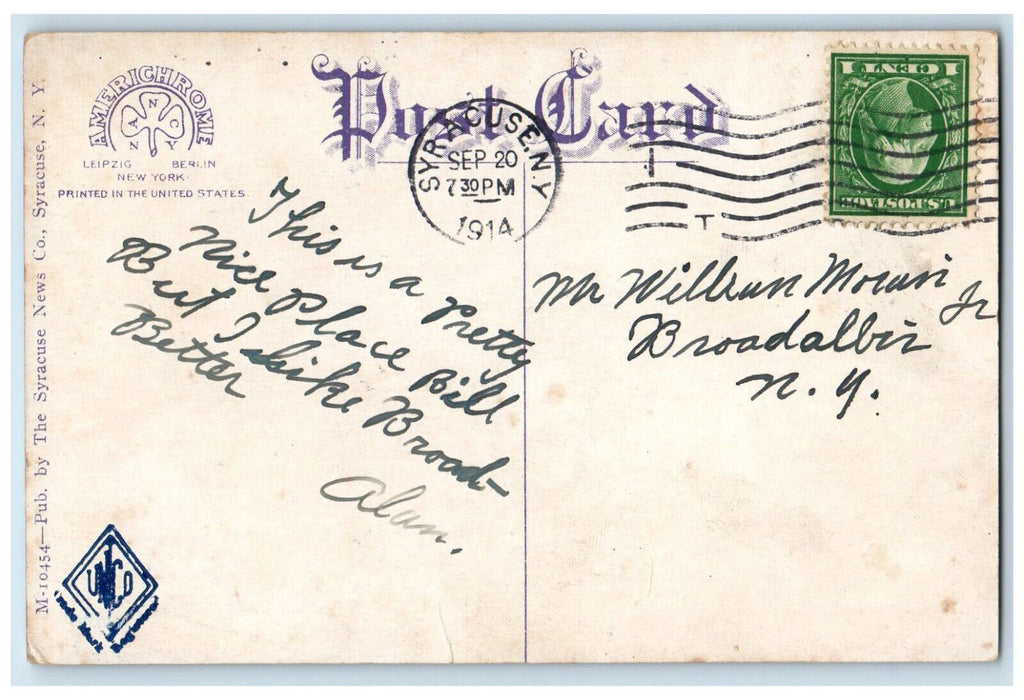 AMERICHROME
A N C N Y
LEIPZIG BERLIN
NEW YORK
PRINTED IN THE UNITED STATES.
Post Card
SYRACUSE, N.Y.
SEP 20
7 30 PM
1914
T
1 CENT 1
U.S. POSTAGE
This is a Pretty
Nice Place Bill
But I Like Broad-
Better
Mr William Jr
Broadalbin
N.Y.
M-10454—Pub. by The Syracuse News Co., Syracuse, N. Y.
Trade Mark